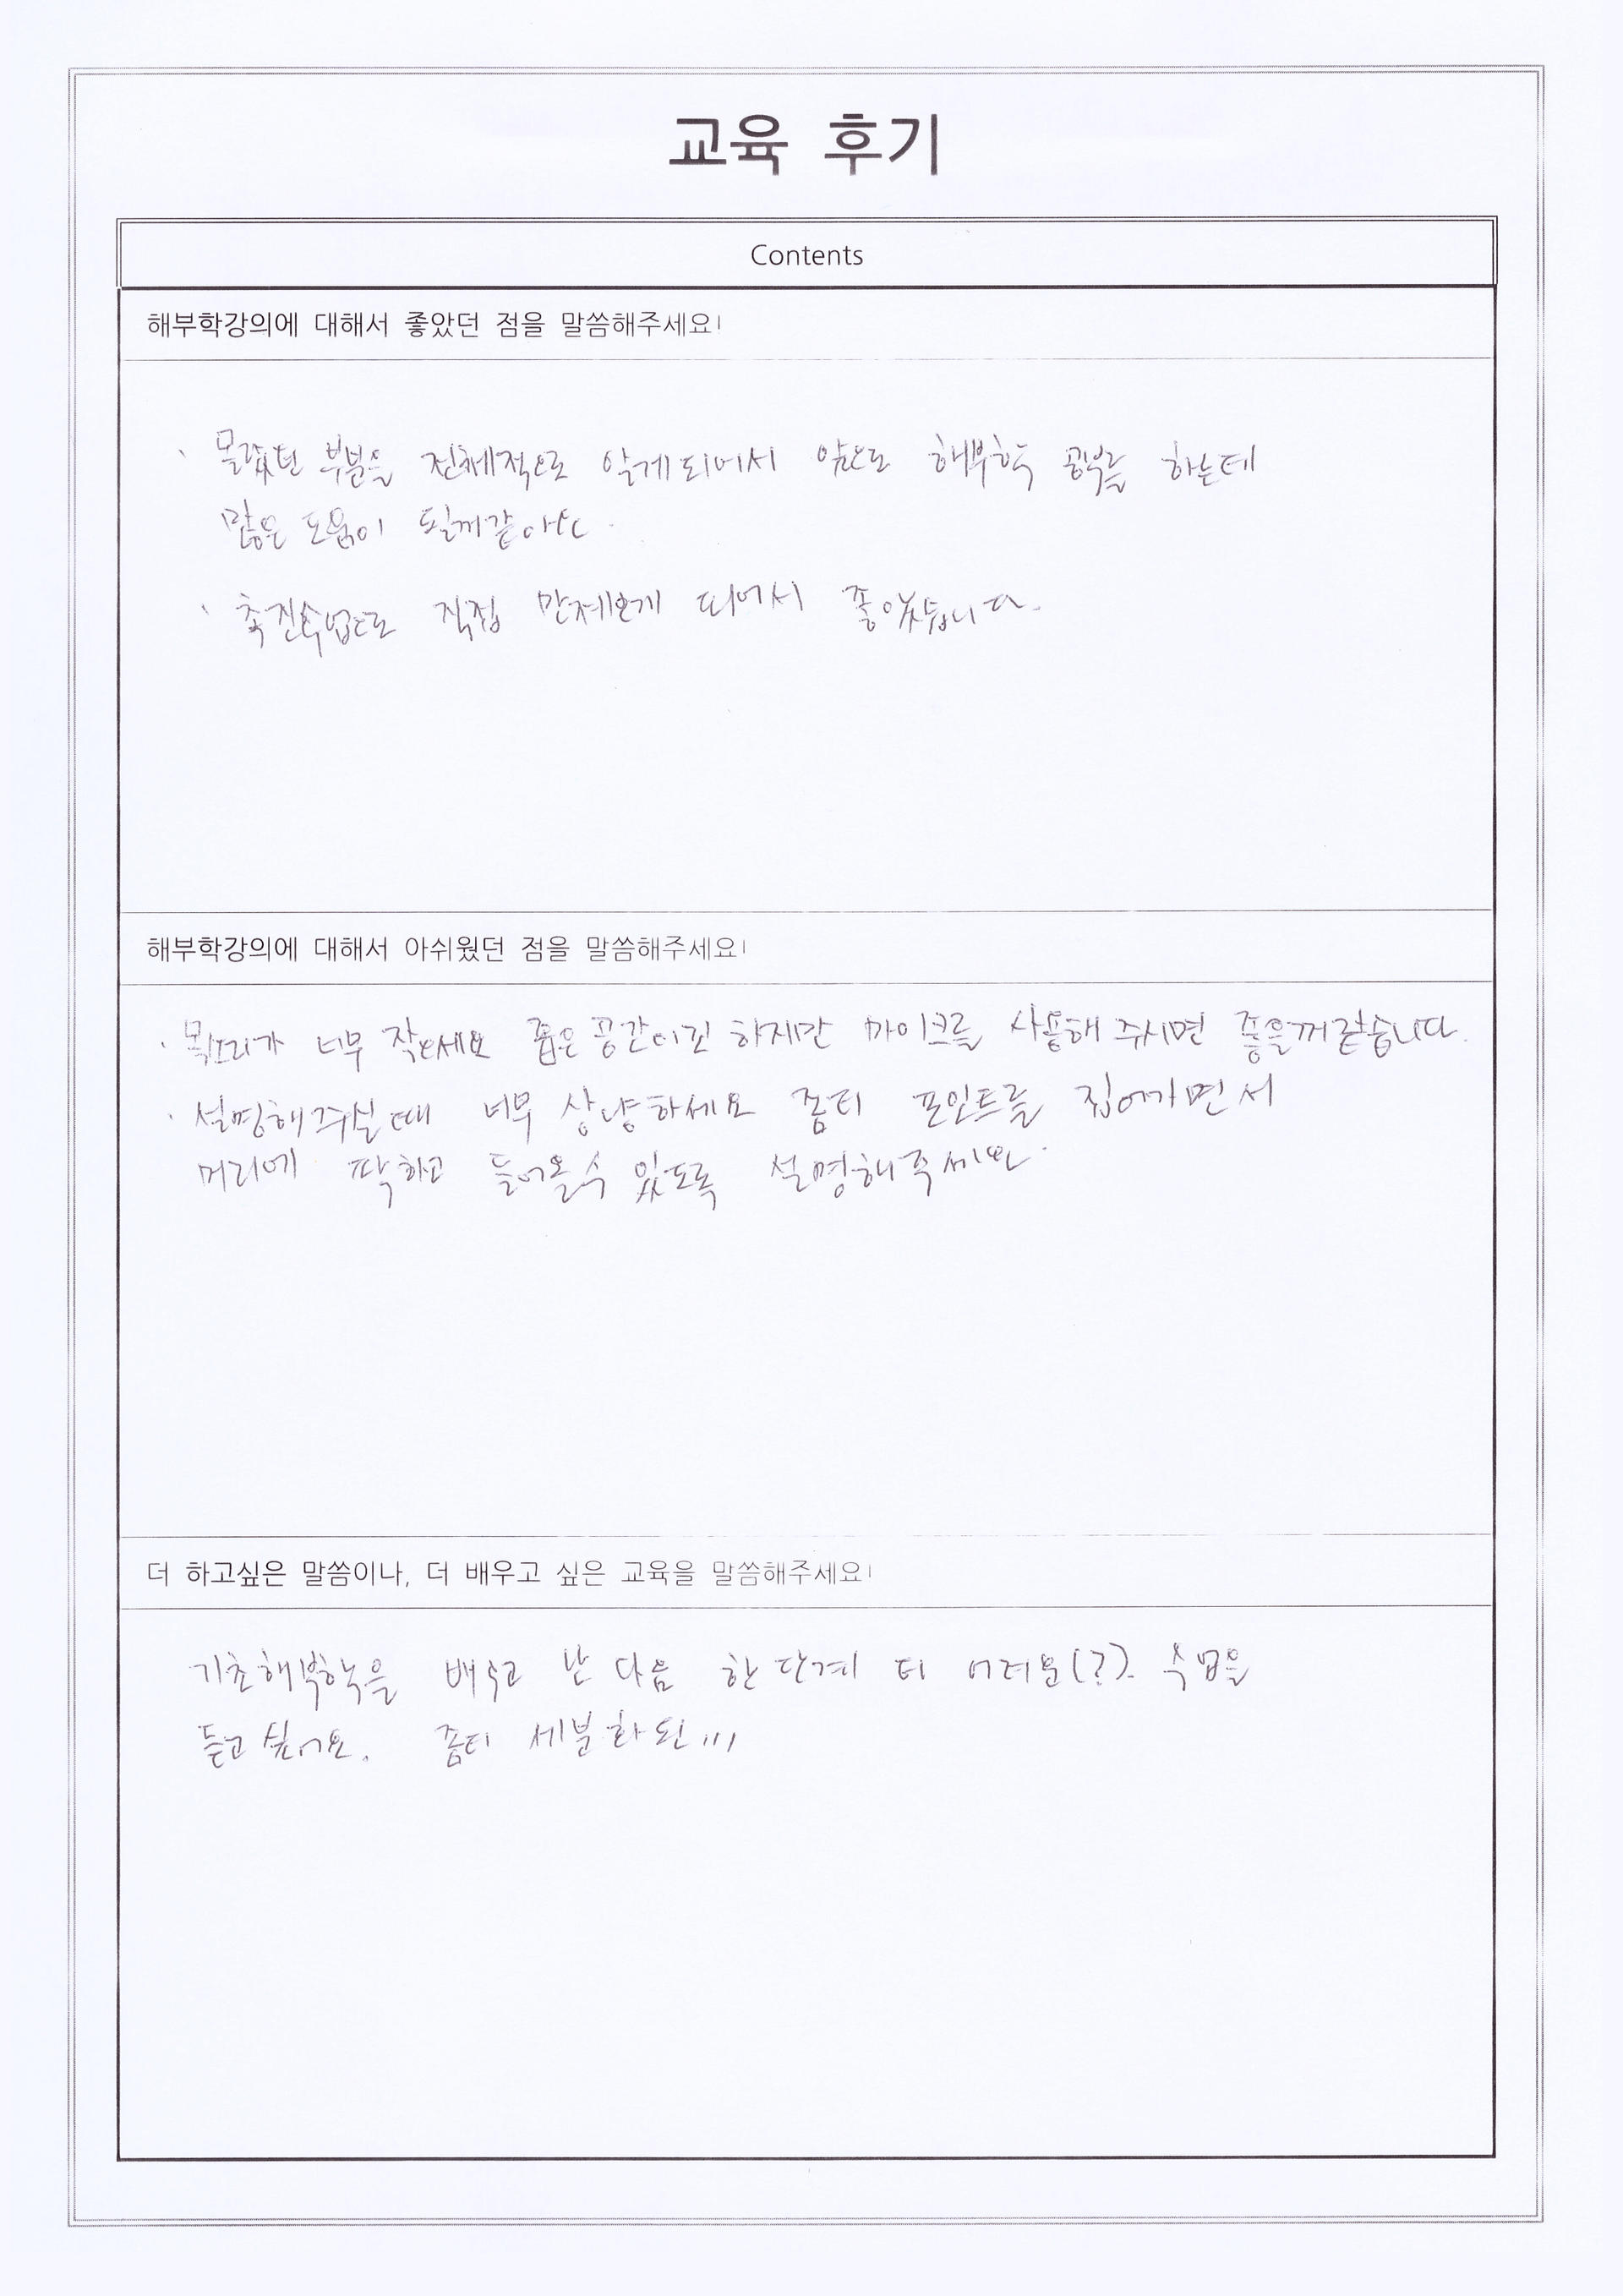 교육 후기
Contents
해부학강의에 대해서 좋았던 점을 말씀해주세요!
· 몰랐던 부분을 전체적으로 알게되어서 앞으로 해부학 공부를 하는데
많은 도움이 될꺼같아요.
· 촉진수업으로 직접 만져보게 되어서 좋았습니다.
해부학강의에 대해서 아쉬웠던 점을 말씀해주세요!
· 목소리가 너무 작으세요 좁은 공간이긴 하지만 마이크를 사용해 주시면 좋을꺼같습니다.
· 설명해주실때 너무 상냥하세요 좀더 포인트를 집어가면서
머리에 딱하고 들어올수 있도록 설명해주세요.
더 하고싶은 말씀이나, 더 배우고 싶은 교육을 말씀해주세요!
기초해부학을 배우고 난 다음 한단계 더 어려운(?) 수업을
듣고 싶어요. 좀더 세분화된...